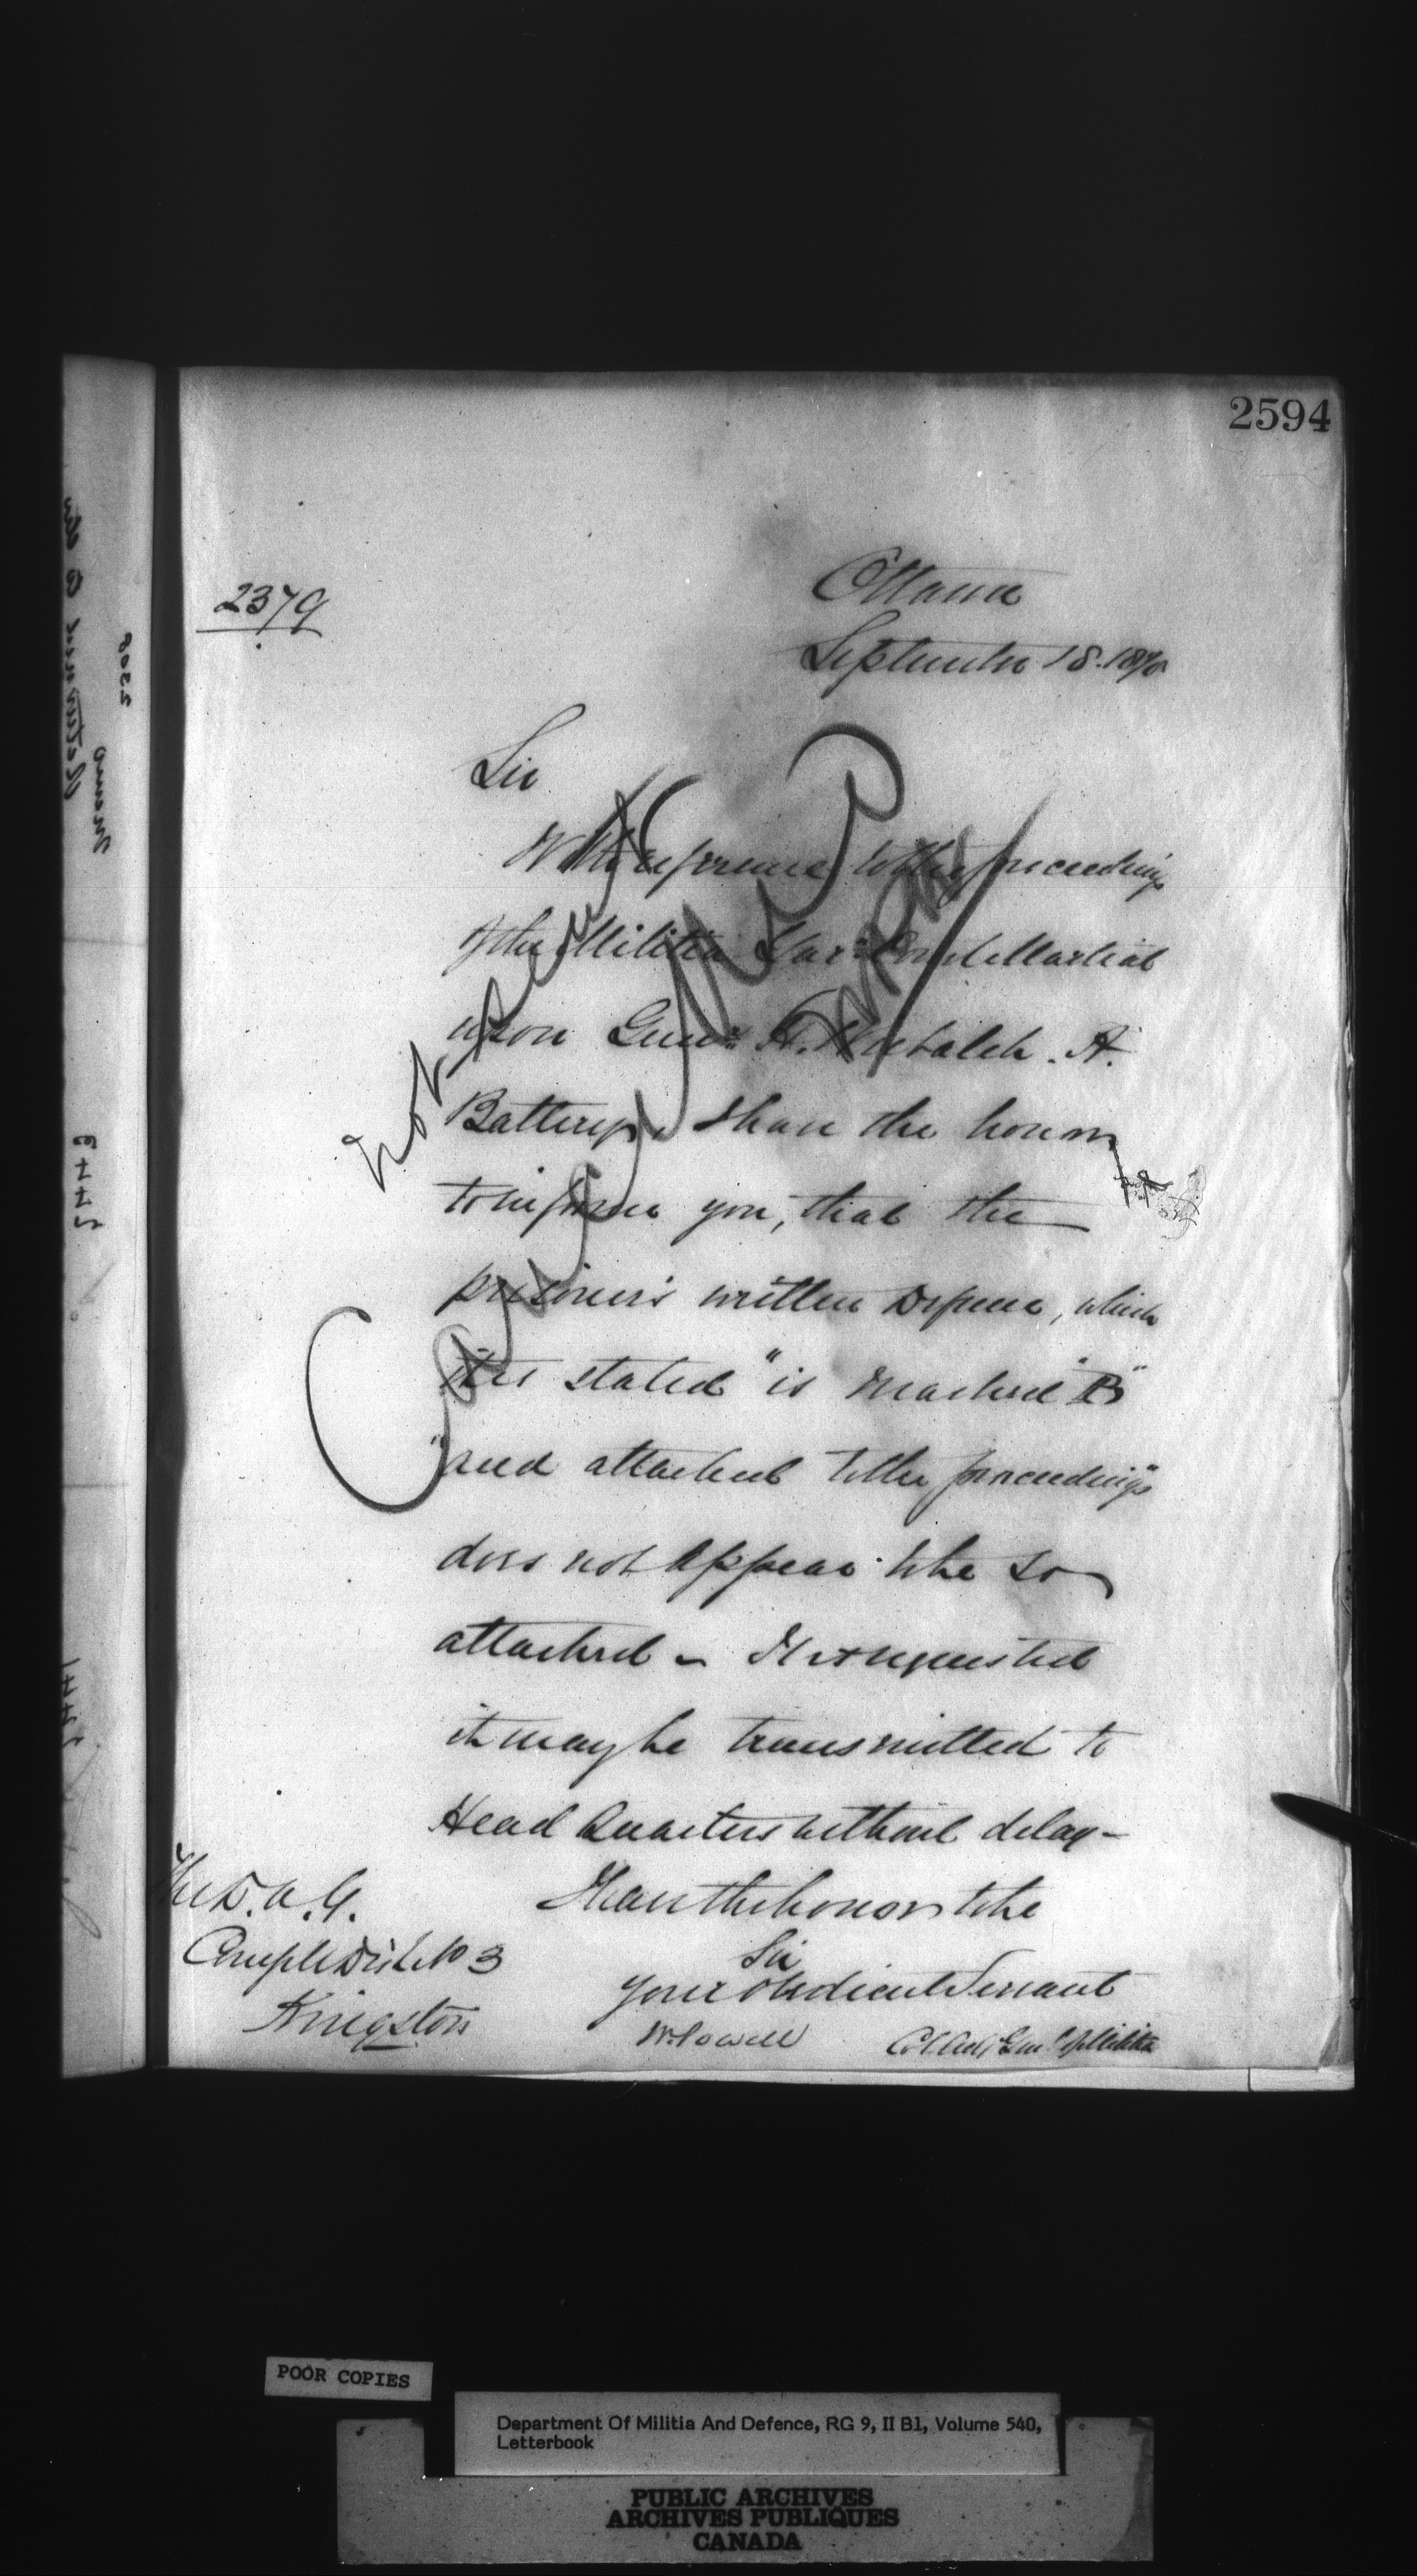 2594
2379
Ottawa
September 18. 187
Sir
With reference to the proceedings
of the Militia Gar: Court Martial
upon Gunr H. A.
Battery, I have the honor
to inform you, that the
prisoner's written Defence, which
it is stated "is marked "B"
"and attached to the proceedings"
does not appear to be so
attached - It is requested
it may be transmitted to
Head Quarters without delay-
I have the honor to be
Sir
Your Obedient Servant
W. Powell Col. Adj Genl of Militia
The D.A.G.
Comg Mil Dist No 3
Kingston
Not sent
Cancelled
2508
Memo
2443
POOR COPIES
Department Of Militia And Defence, RG 9, II B1, Volume 540,
Letterbook
PUBLIC ARCHIVES
ARCHIVES PUBLIQUES
CANADA